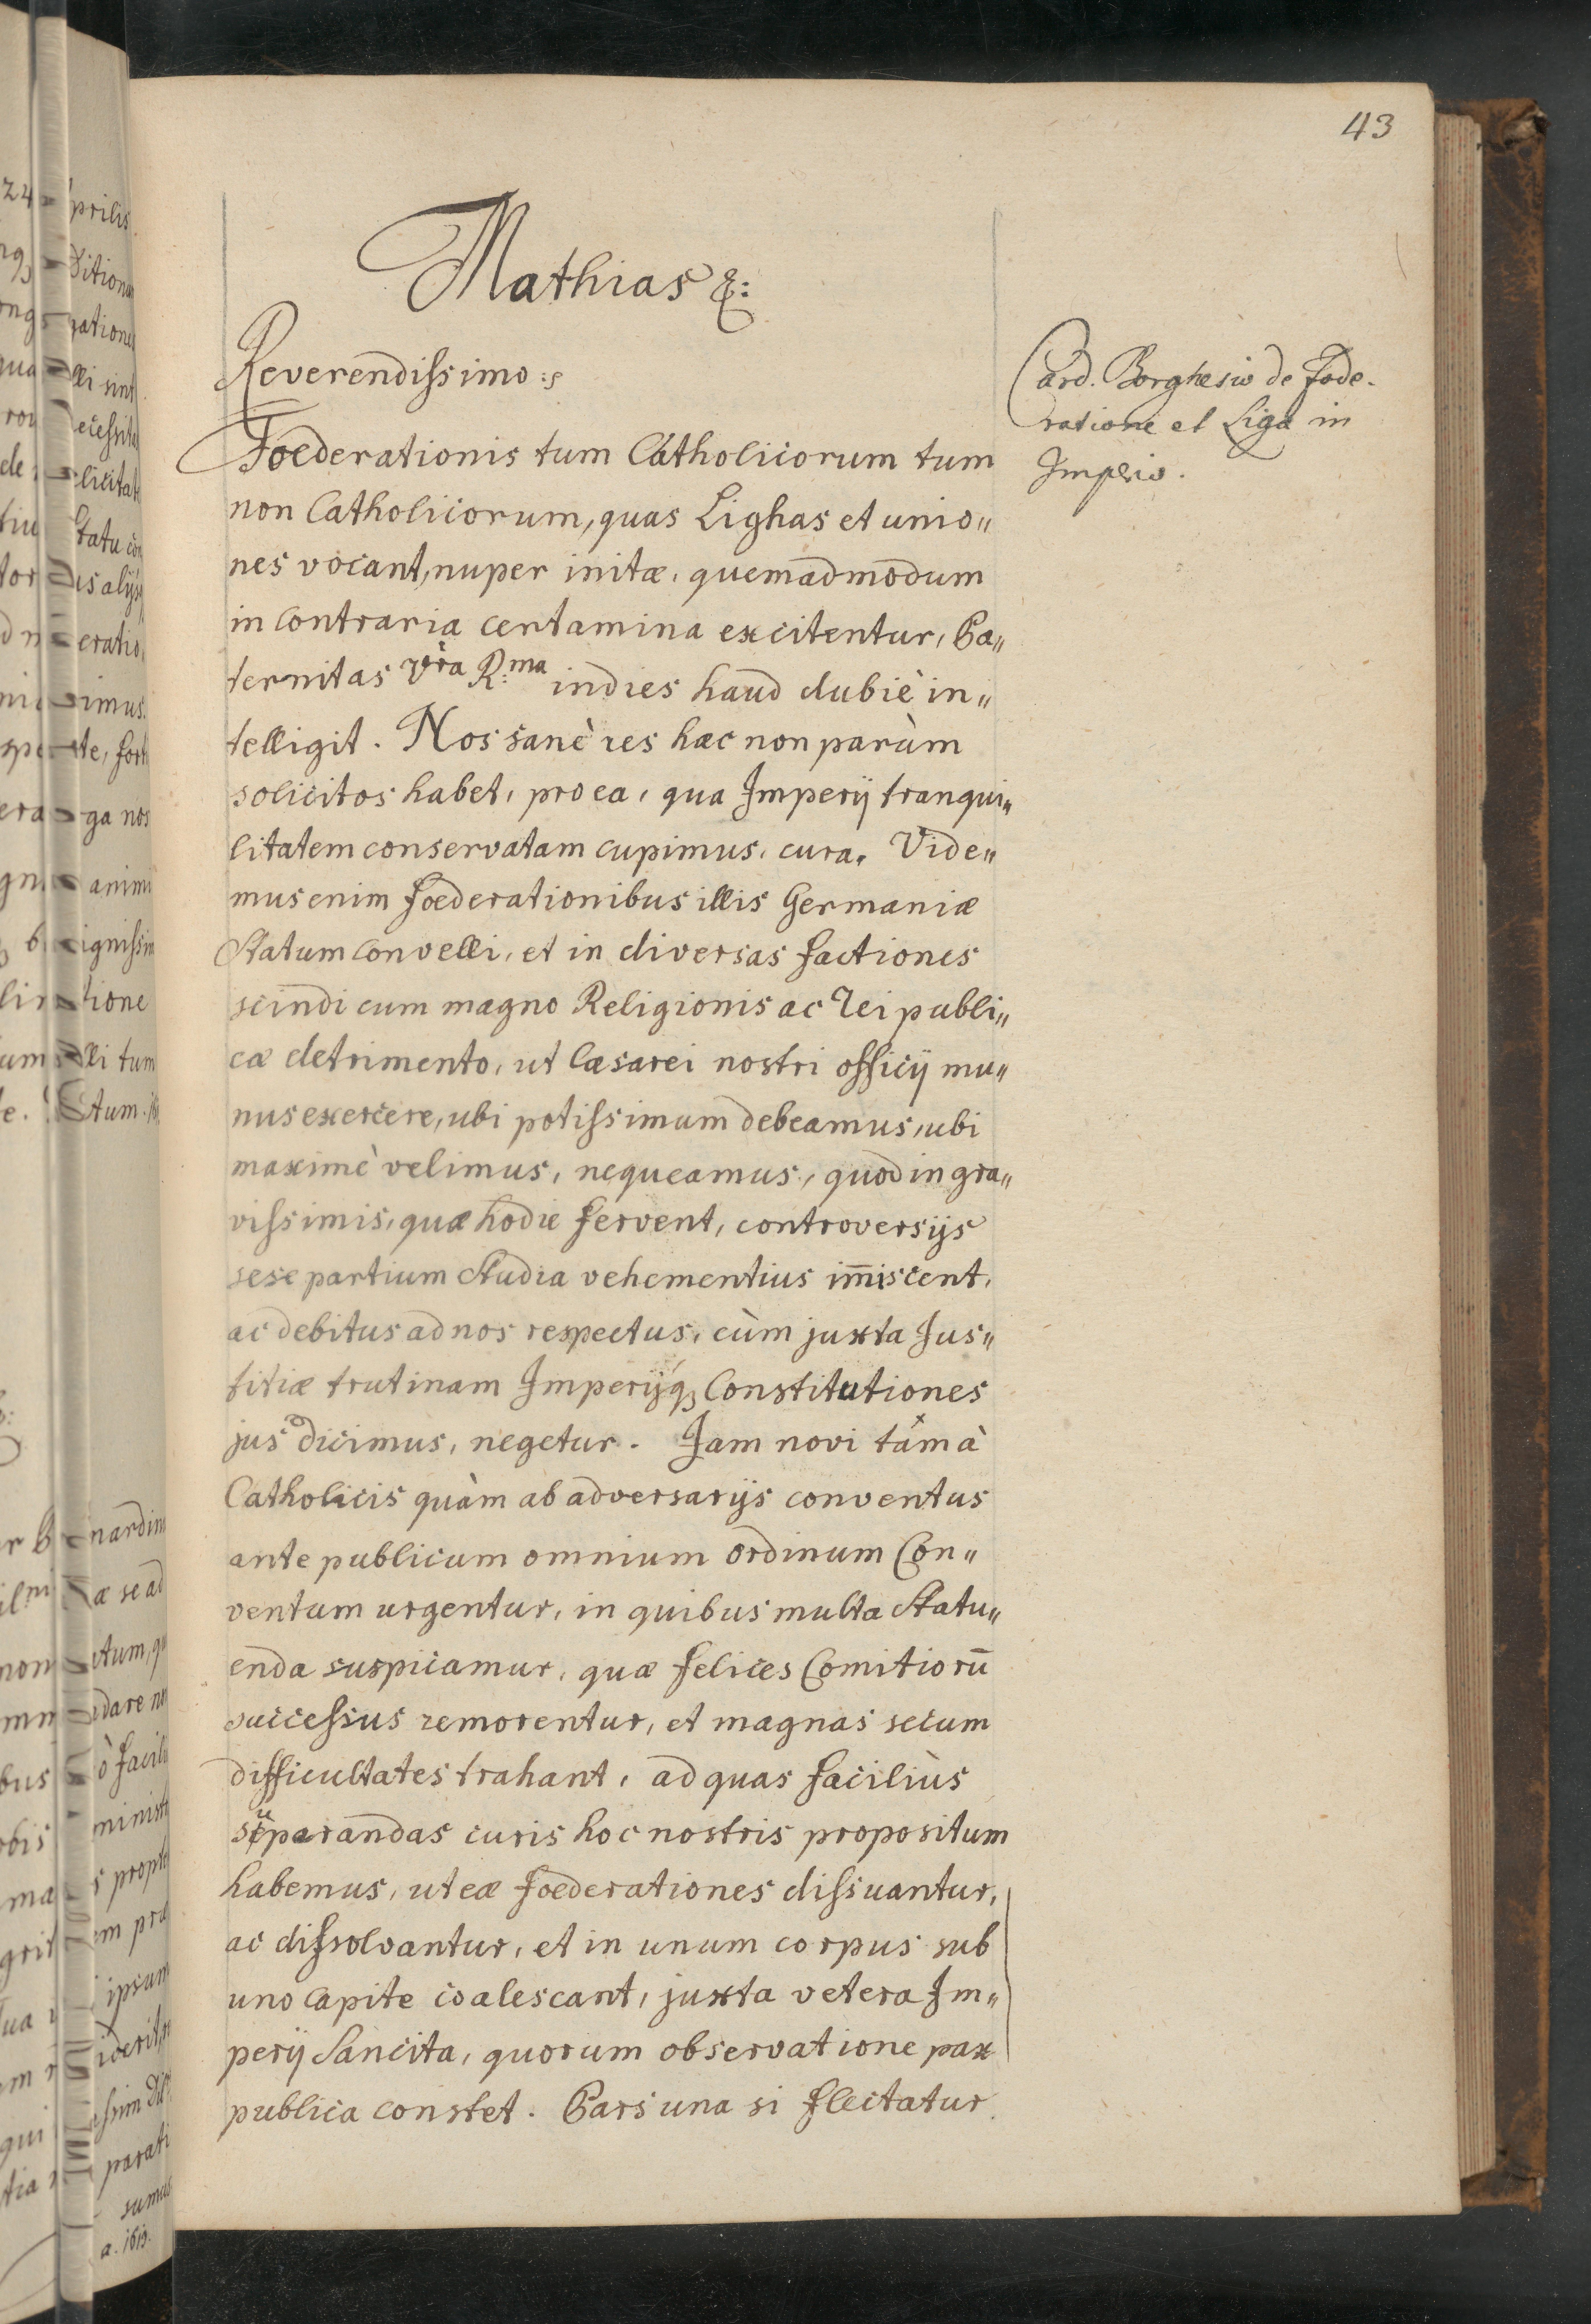 43
Mathias &:
Reverendissimo:
Card. Borghesio de Fœde-
ratione et Liga in
Imperio.
Fœderationis tum Catholicorum tum
non Catholicorum, quas Lighas et unio„
nes vocant, nuper initæ, quemadmodum
in contraria certamina excitentur, Pa„
ternitas Vra R:ma indies haud dubiè in„
telligit. Nos sanè res hæc non parùm
solicitos habet, pro ea, qua Imperij tranqui„
litatem conservatam cupimus, cura. Vide„
mus enim fœderationibus illis Germaniæ
statum convelli, et in diversas factiones
scindi cum magno Religionis ac rei publi„
cæ detrimento, ut Cæsarei nostri officij mu„
nus exercere, ubi potissimum debeamus, ubi
maximè velimus, nequeamus, quod in gra„
vissimis, quæ hodie fervent, controversijs
sese partium studia vehementius im̄iscent,
ac debitus ad nos respectus, cùm juxta Jus„
titiæ trutinam Imperijq; Constitutiones
jus dicimus, negetur. Jam novi tam à
Catholicis quàm ab adversarijs conventus
ante publicum omnium ordinum Con„
ventum urgentur, in quibus multa statu„
enda suspicamur, quæ felices Comitiorū
successus remorentur, et magnas secum
difficultates trahant, ad quas faciliùs
separandas curis hoc nostris propositum
habemus, ut eæ fœderationes dissuantur,
ac dissolvantur, et in unum corpus sub
uno capite coalescant, juxta vetera Im„
perij Sancita, quorum observatione pax
publica constet. Pars una si flectatur